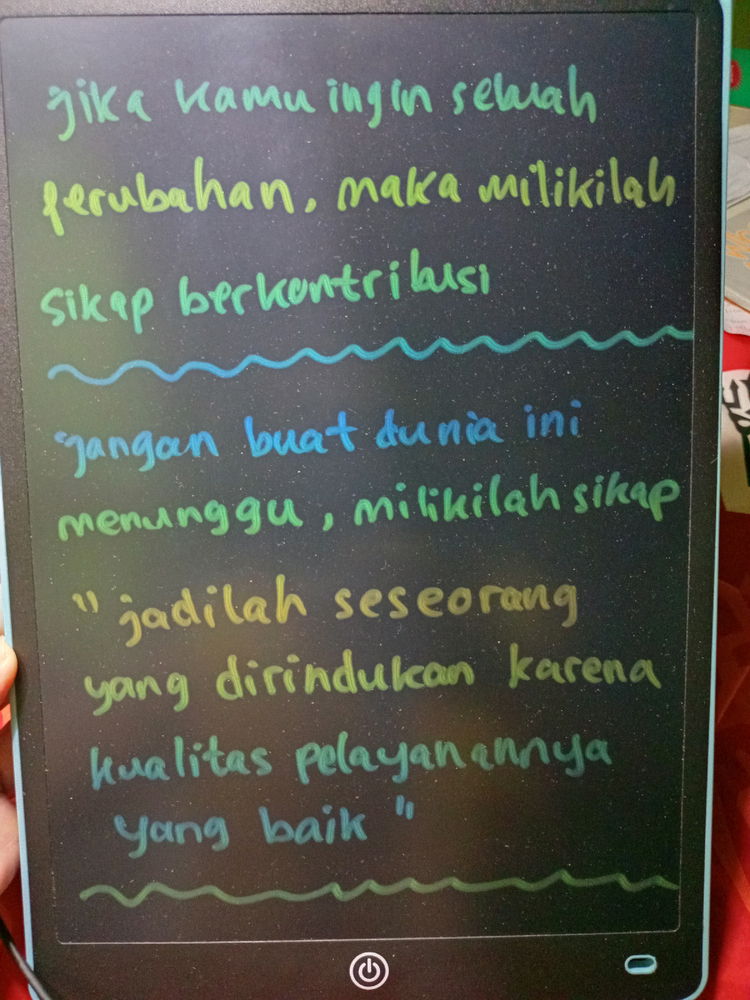 jika kamu ingin sebuah
perubahan, maka milikilah
sikap berkontribusi
jangan buat dunia ini
menunggu, milikilah sikap
"jadilah seseorang
yang dirindukan karena
kualitas pelayanannya
yang baik"